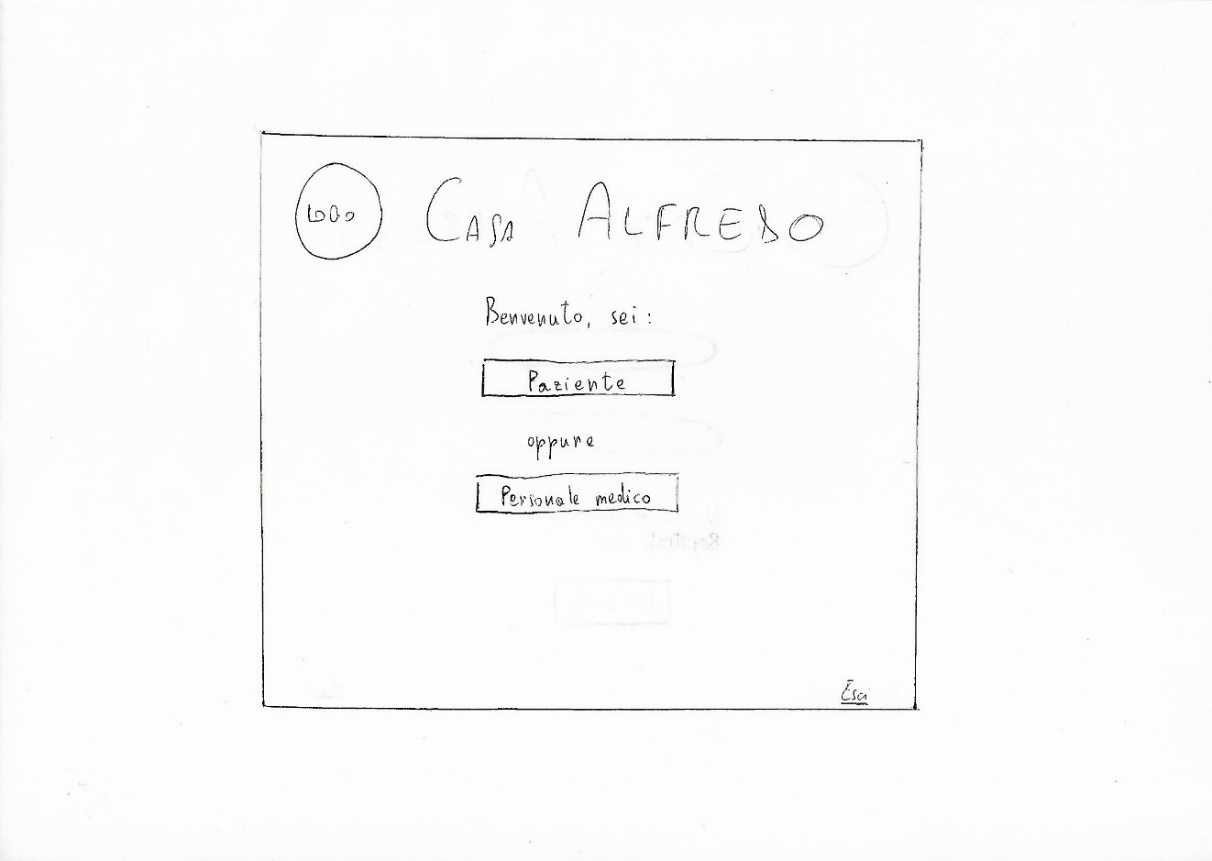 LOGO CASA ALFREDO
Benvenuto, sei:
Paziente
oppure
Personale medico
Esci